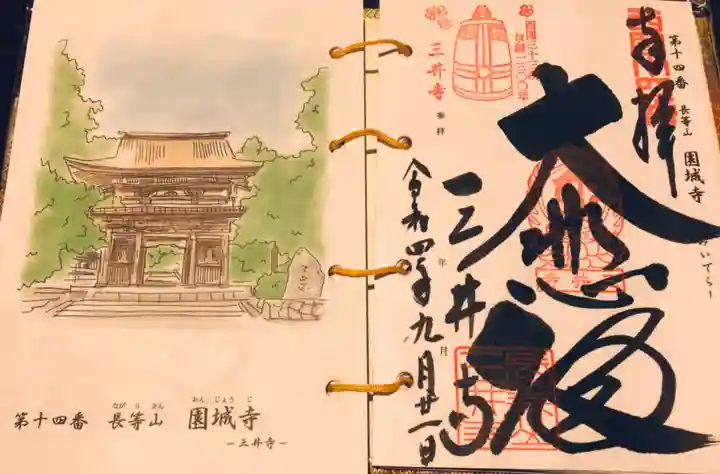 第十四番 長等山 園城寺
ながらさん おんじょうじ
ー三井寺ー
奉拝
第十四番 長等山 園城寺
西国三十三所
草創一三〇〇年
三井寺
参拝
大悲閣
三井寺
令和四年九月廿一日
年
月